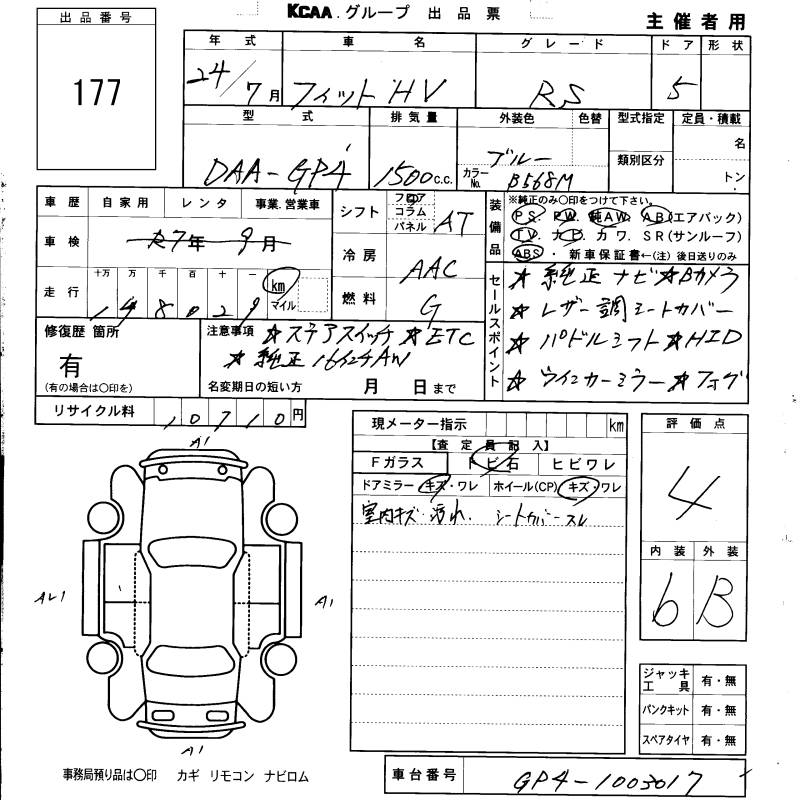 KCAA グループ 出品票
主催者用
出品番号
177
年式 車名 グレード ドア 形状
24/7月 フィットHV RS 5
型式 排気量 外装色 色替 型式指定 定員・積載
DAA-GP4 1500c.c. ブルー 名
カラーNo. B568M 類別区分 トン
車歴 自家用 レンタ 事業.営業車
車検 R7年 9月
走行 十万 万 千 百 十 一 km マイル
148029
シフト フロア コラム パネル AT
冷房 AAC
燃料 G
装備品 ※純正のみ〇印をつけて下さい。
PS. PW. 純AW. AB(エアバック)
TV. ナビ. カワ. SR(サンルーフ)
ABS. 新車保証書←(注)後日送りのみ
セールスポイント
☆純正ナビ☆Bカメラ
☆レザー調シートカバー
☆パドルシフト☆HID
☆ウインカーミラー☆フォグ
修復歴 箇所
有
(有の場合は〇印を)
注意事項 ☆ステアスイッチ☆ETC
☆純正16インチAW
名変期日の短い方 月 日まで
リサイクル料 10710円
現メーター指示 km
【査定員記入】
Fガラス トビ石 ヒビワレ
ドアミラー キズ・ワレ ホイール(CP) キズ・ワレ
室内キズ・汚れ. シートカバースレ
評価点
4
内装 外装
6 B
A1
AU1
A1
A1
ジャッキ工具 有・無
パンクキット 有・無
スペアタイヤ 有・無
事務局預り品は〇印 カギ リモコン ナビロム
車台番号 GP4-1003017